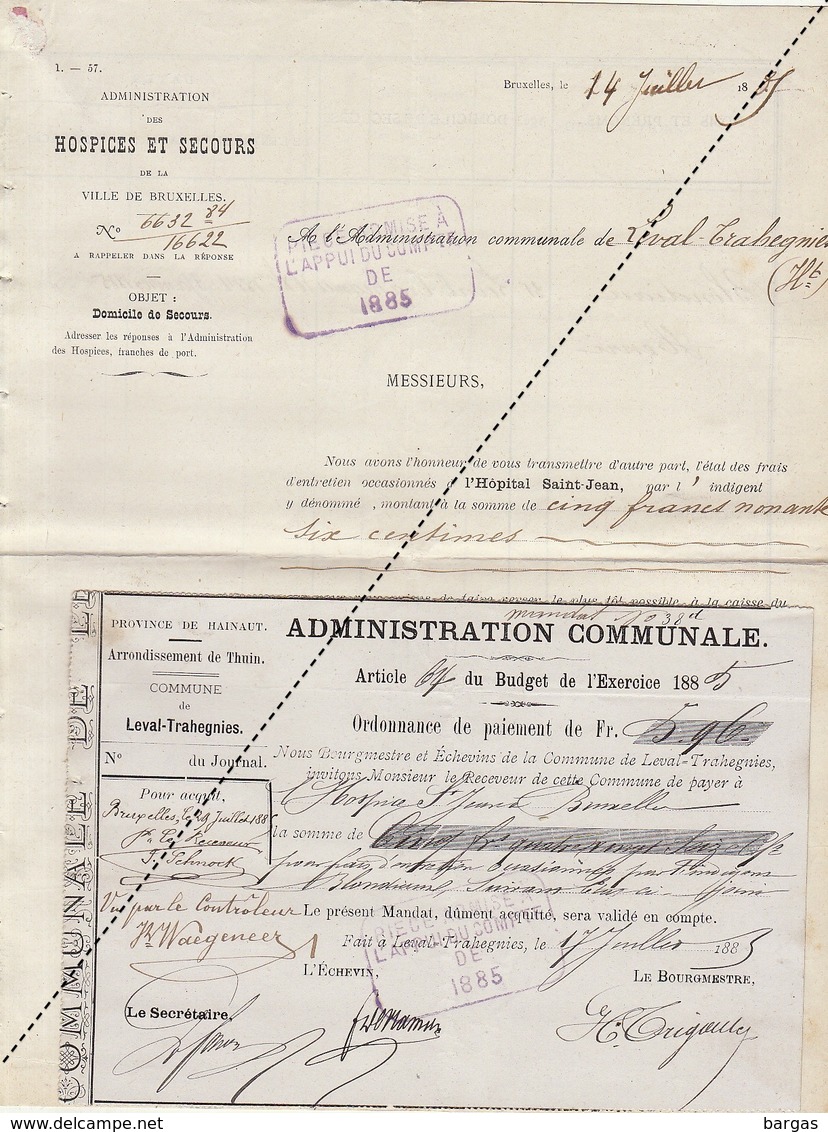 1. — 57.
ADMINISTRATION
DES
HOSPICES ET SECOURS
DE LA
VILLE DE BRUXELLES.
N° 6632 84
16622
A RAPPELER DANS LA RÉPONSE
OBJET :
Domicile de Secours.
Adresser les réponses à l'Administration
des Hospices, franches de port.
Bruxelles, le 14 Juillet 1885
PIÈCE REMISE À
L'APPUI DU COMPTE
DE
1885
A l'Administration communale de Leval-Trahegnies
(Ht)
MESSIEURS,
Nous avons l'honneur de vous transmettre d'autre part, l'état des frais
d'entretien occasionnés à l'Hôpital Saint-Jean, par l' indigent
y dénommé , montant à la somme de cinq francs nonante
six centimes
de faire verser le plus tôt possible, à la caisse du
mandat No 38
COMMUNALE DE LE
PROVINCE DE HAINAUT.
Arrondissement de Thuin.
COMMUNE
de
Leval-Trahegnies.
N° du Journal.
Pour acquit,
Bruxelles, le 29 Juillet 188
Pr Le Receveur
F. Schnock
Vu par le Contrôleur
Waegeneer
ADMINISTRATION COMMUNALE.
Article 64 du Budget de l'Exercice 1885
Ordonnance de paiement de Fr. 5.96
Nous Bourgmestre et Échevins de la Commune de Leval-Trahegnies,
invitons Monsieur le Receveur de cette Commune de payer à
l'Hospice St Jean à Bruxelles
la somme de Cinq frs quatre vingt Seize Cs
pour frais d'entretien occasionnés par l'indigent
Le présent Mandat, dûment acquitté, sera validé en compte.
PIÈCE REMISE À
L'APPUI DU COMPTE
DE
1885
Fait à Leval-Trahegnies, le 17 Juillet 1885
L'ÉCHEVIN,
LE BOURGMESTRE,
Le Secrétaire,
bargas